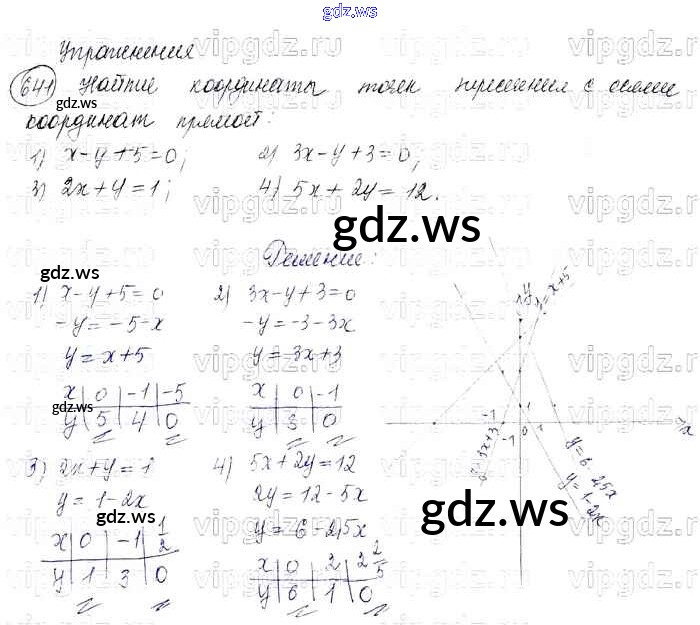 gdz.ws
Упражнения
641 Найти координаты точек пересечения с осями
координат прямой:
1) x-y+5=0; 2) 3x-y+3=0;
3) 2x+y=1; 4) 5x+2y=12.
gdz.ws
Решение:
1) x-y+5=0
-y=-5-x
y=x+5
x | 0 | -1 | -5
y | 5 | 4 | 0
2) 3x-y+3=0
-y=-3-3x
y=3x+3
x | 0 | -1
y | 3 | 0
3) 2x+y=1
y=1-2x
x | 0 | -1 | 1/2
y | 1 | 3 | 0
4) 5x+2y=12
2y=12-5x
y=6-2,5x
x | 0 | 2 | 2 2/5
y | 6 | 1 | 0
y
y=x+5
-1
1
-1
0
x
y=3x+3
y=6-2,5x
y=1-2x
gdz.ws
gdz.ws
gdz.ws
gdz.ws
gdz.ws
gdz.ws
gdz.ws
vipgdz.ru